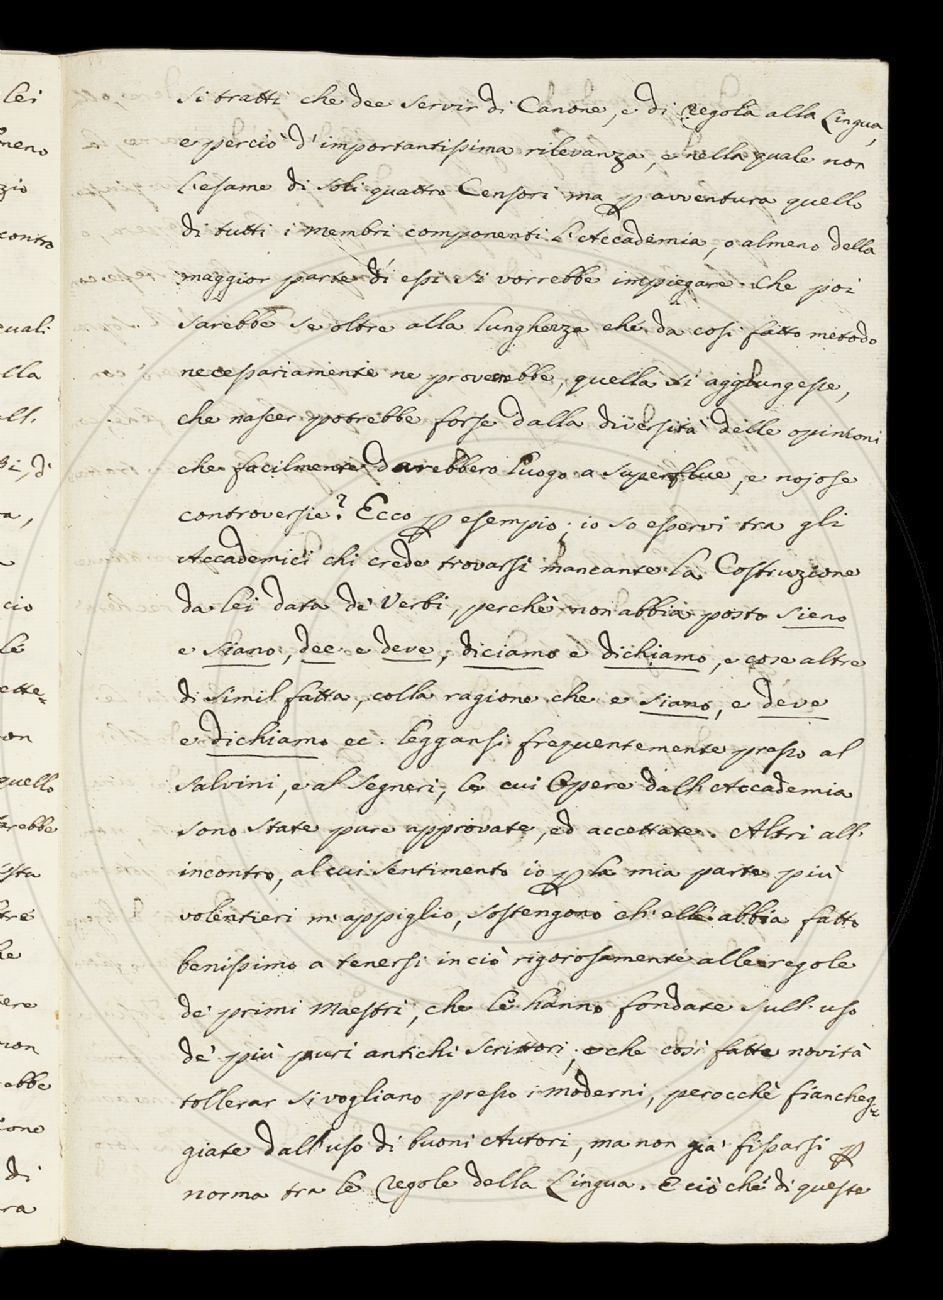 si tratti che dee servir di Canone, e di Regola alla Lingua,
e perciò d'importantissima rilevanza, e nella quale non
l'esame di soli quattro Censori ma p avventura quello
di tutti i membri componenti l'Accademia, o almeno della
maggior parte di essi si vorrebbe impiegare. Che poi
sarebbe se oltre alla lunghezza che da così fatto metodo
necessariamente ne proverrebbe, quella si aggiungesse,
che nascer potrebbe forse dalla diversità delle opinioni
che facilmente darebbero luogo a superflue, e nojose
controversie? Ecco p esempio; io so esservi tra gli
Accademici chi crede trovarsi mancante la Costruzione
da lei data de' Verbi, perchè non abbia posto sieno
e siano, dee e deve, diciamo e dichiamo, e cose altre
di simil fatta, colla ragione che e siano, e deve
e dichiamo ec. leggansi frequentemente presso al
Salvini, e al Segneri, le cui Opere dall'Accademia
sono state pure approvate, ed accettate. Altri all'
incontro, al cui sentimento io p la mia parte più
volentieri m'appiglio, sostengono ch'ella abbia fatto
benissimo a tenersi in ciò rigorosamente alle regole
de' primi Maestri, che le hanno fondate sull'uso
de' più puri antichi Scrittori; e che così fatte novità
tollerar si vogliano presso i moderni, perocchè fiancheg=
giate dall'uso di buoni Autori, ma non già fissarsi p
norma tra le Regole della Lingua. E ciò che di queste
lei
zio
contro
quali
lla
cio
le
ette=
on
quello
arebbe
ista
tre
he
ere
non
ebbe
ione
di
ra